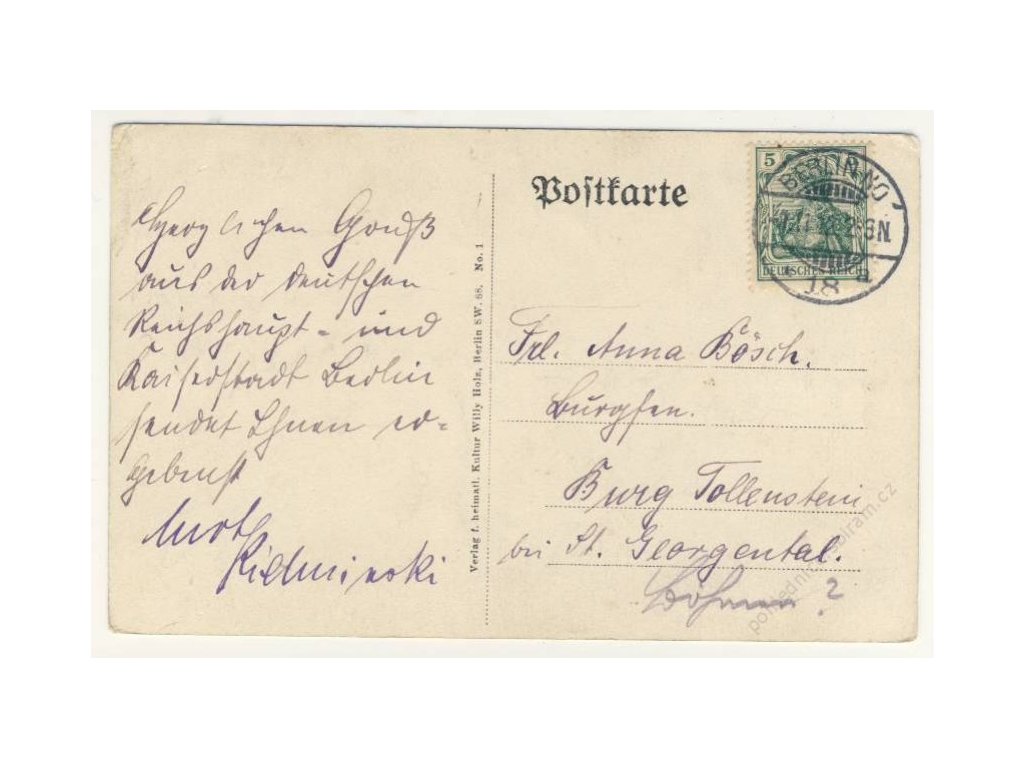 Herzlichen Gruß
aus der deutschen
Reichshaupt- und
Kaiserstadt Berlin
sendet Ihnen er-
gebenst
Verlag f. heimatl. Kultur Willy Holz, Berlin SW. 68. No. 1
Postkarte
5
DEUTSCHES REICH
BERLIN NO
18
Frl. Anna Bösch.
Burgfen.
Burg Tollenstein
bei St. Georgental.
Böhmen?
pohlednice-sbiram.cz